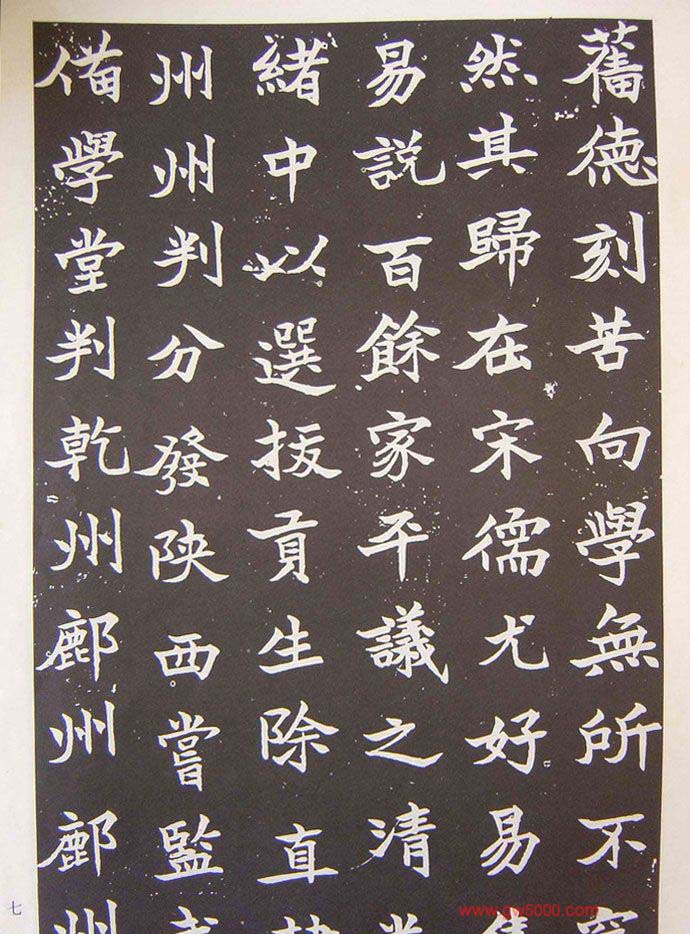 舊德刻苦向學無所不
然其歸在宋儒尤好易
易說百餘家平議之清
緒中以選拔貢生除直
州州判分發陝西嘗監
備學堂判乾州鄜州鄜州
七
www.gw5000.com